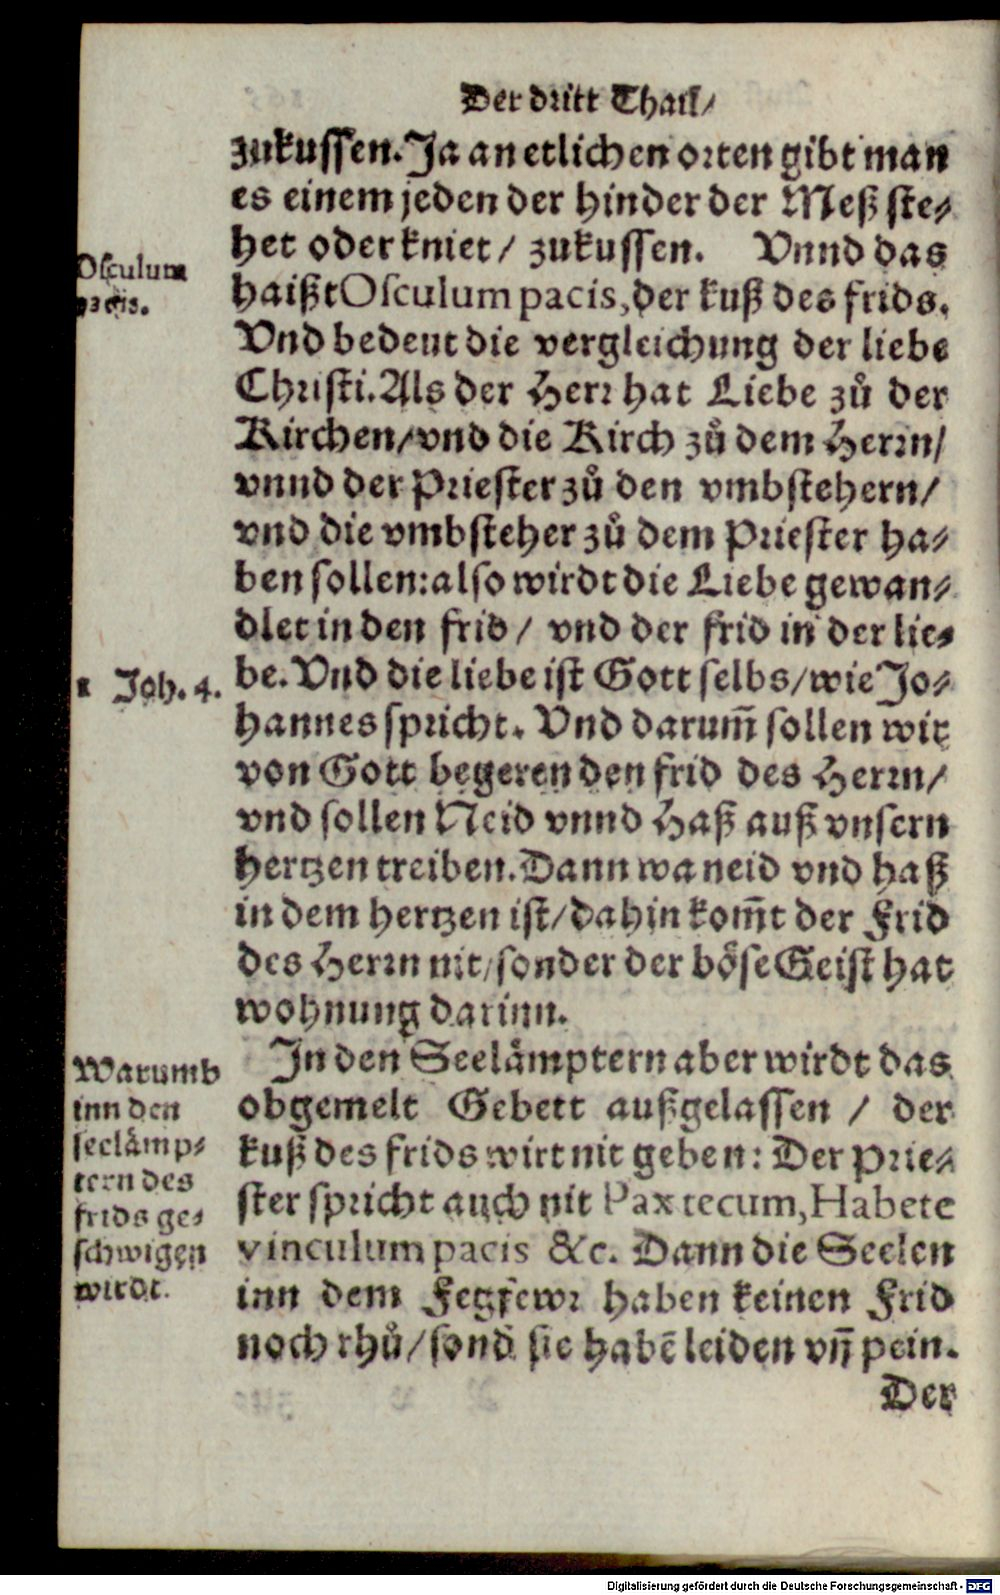 Der dritt Thail/
zukussen. Ja an etlichen orten gibt man
es einem jeden der hinder der Meß ste-
het oder kniet / zukussen. Vnnd das
Osculum
pacis.
haißt Osculum pacis, der kuß des frids.
Vnd bedeut die vergleichung der liebe
Christi. Als der Herr hat Liebe zů der
Kirchen/vnd die Kirch zů dem Herrn/
vnnd der Priester zů den vmbstehern/
vnd die vmbsteher zů dem Priester ha-
ben sollen: also wirdt die Liebe gewan-
dlet in den frid / vnd der frid in der lie-
1 Joh. 4.
be. Vnd die liebe ist Gott selbs/wie Jo-
hannes spricht. Vnd darum̃ sollen wir
von Gott begeren den frid des Herrn/
vnd sollen Neid vnnd Haß auß vnsern
hertzen treiben. Dann wa neid vnd haß
in dem hertzen ist/dahin kom̃t der Frid
des Herrn nit/sonder der böse Geist hat
wohnung darinn.
Warumb
inn den
seelämp-
tern des
frids ge-
schwigen
wirdt.
In den Seelämptern aber wirdt das
obgemelt Gebett außgelassen / der
kuß des frids wirt nit geben: Der Prie-
ster spricht auch nit Pax tecum, Habete
vinculum pacis &c. Dann die Seelen
inn dem Fegfewr haben keinen Frid
noch rhů/sond̃ sie habẽ leiden vñ pein.
Der
Digitalisierung gefördert durch die Deutsche Forschungsgemeinschaft - DFG